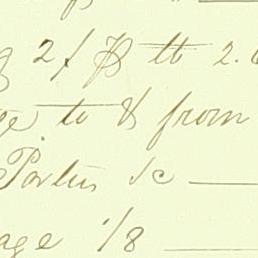 2/ ₽ lb 2.
to & from
Porter &c
age 1/8